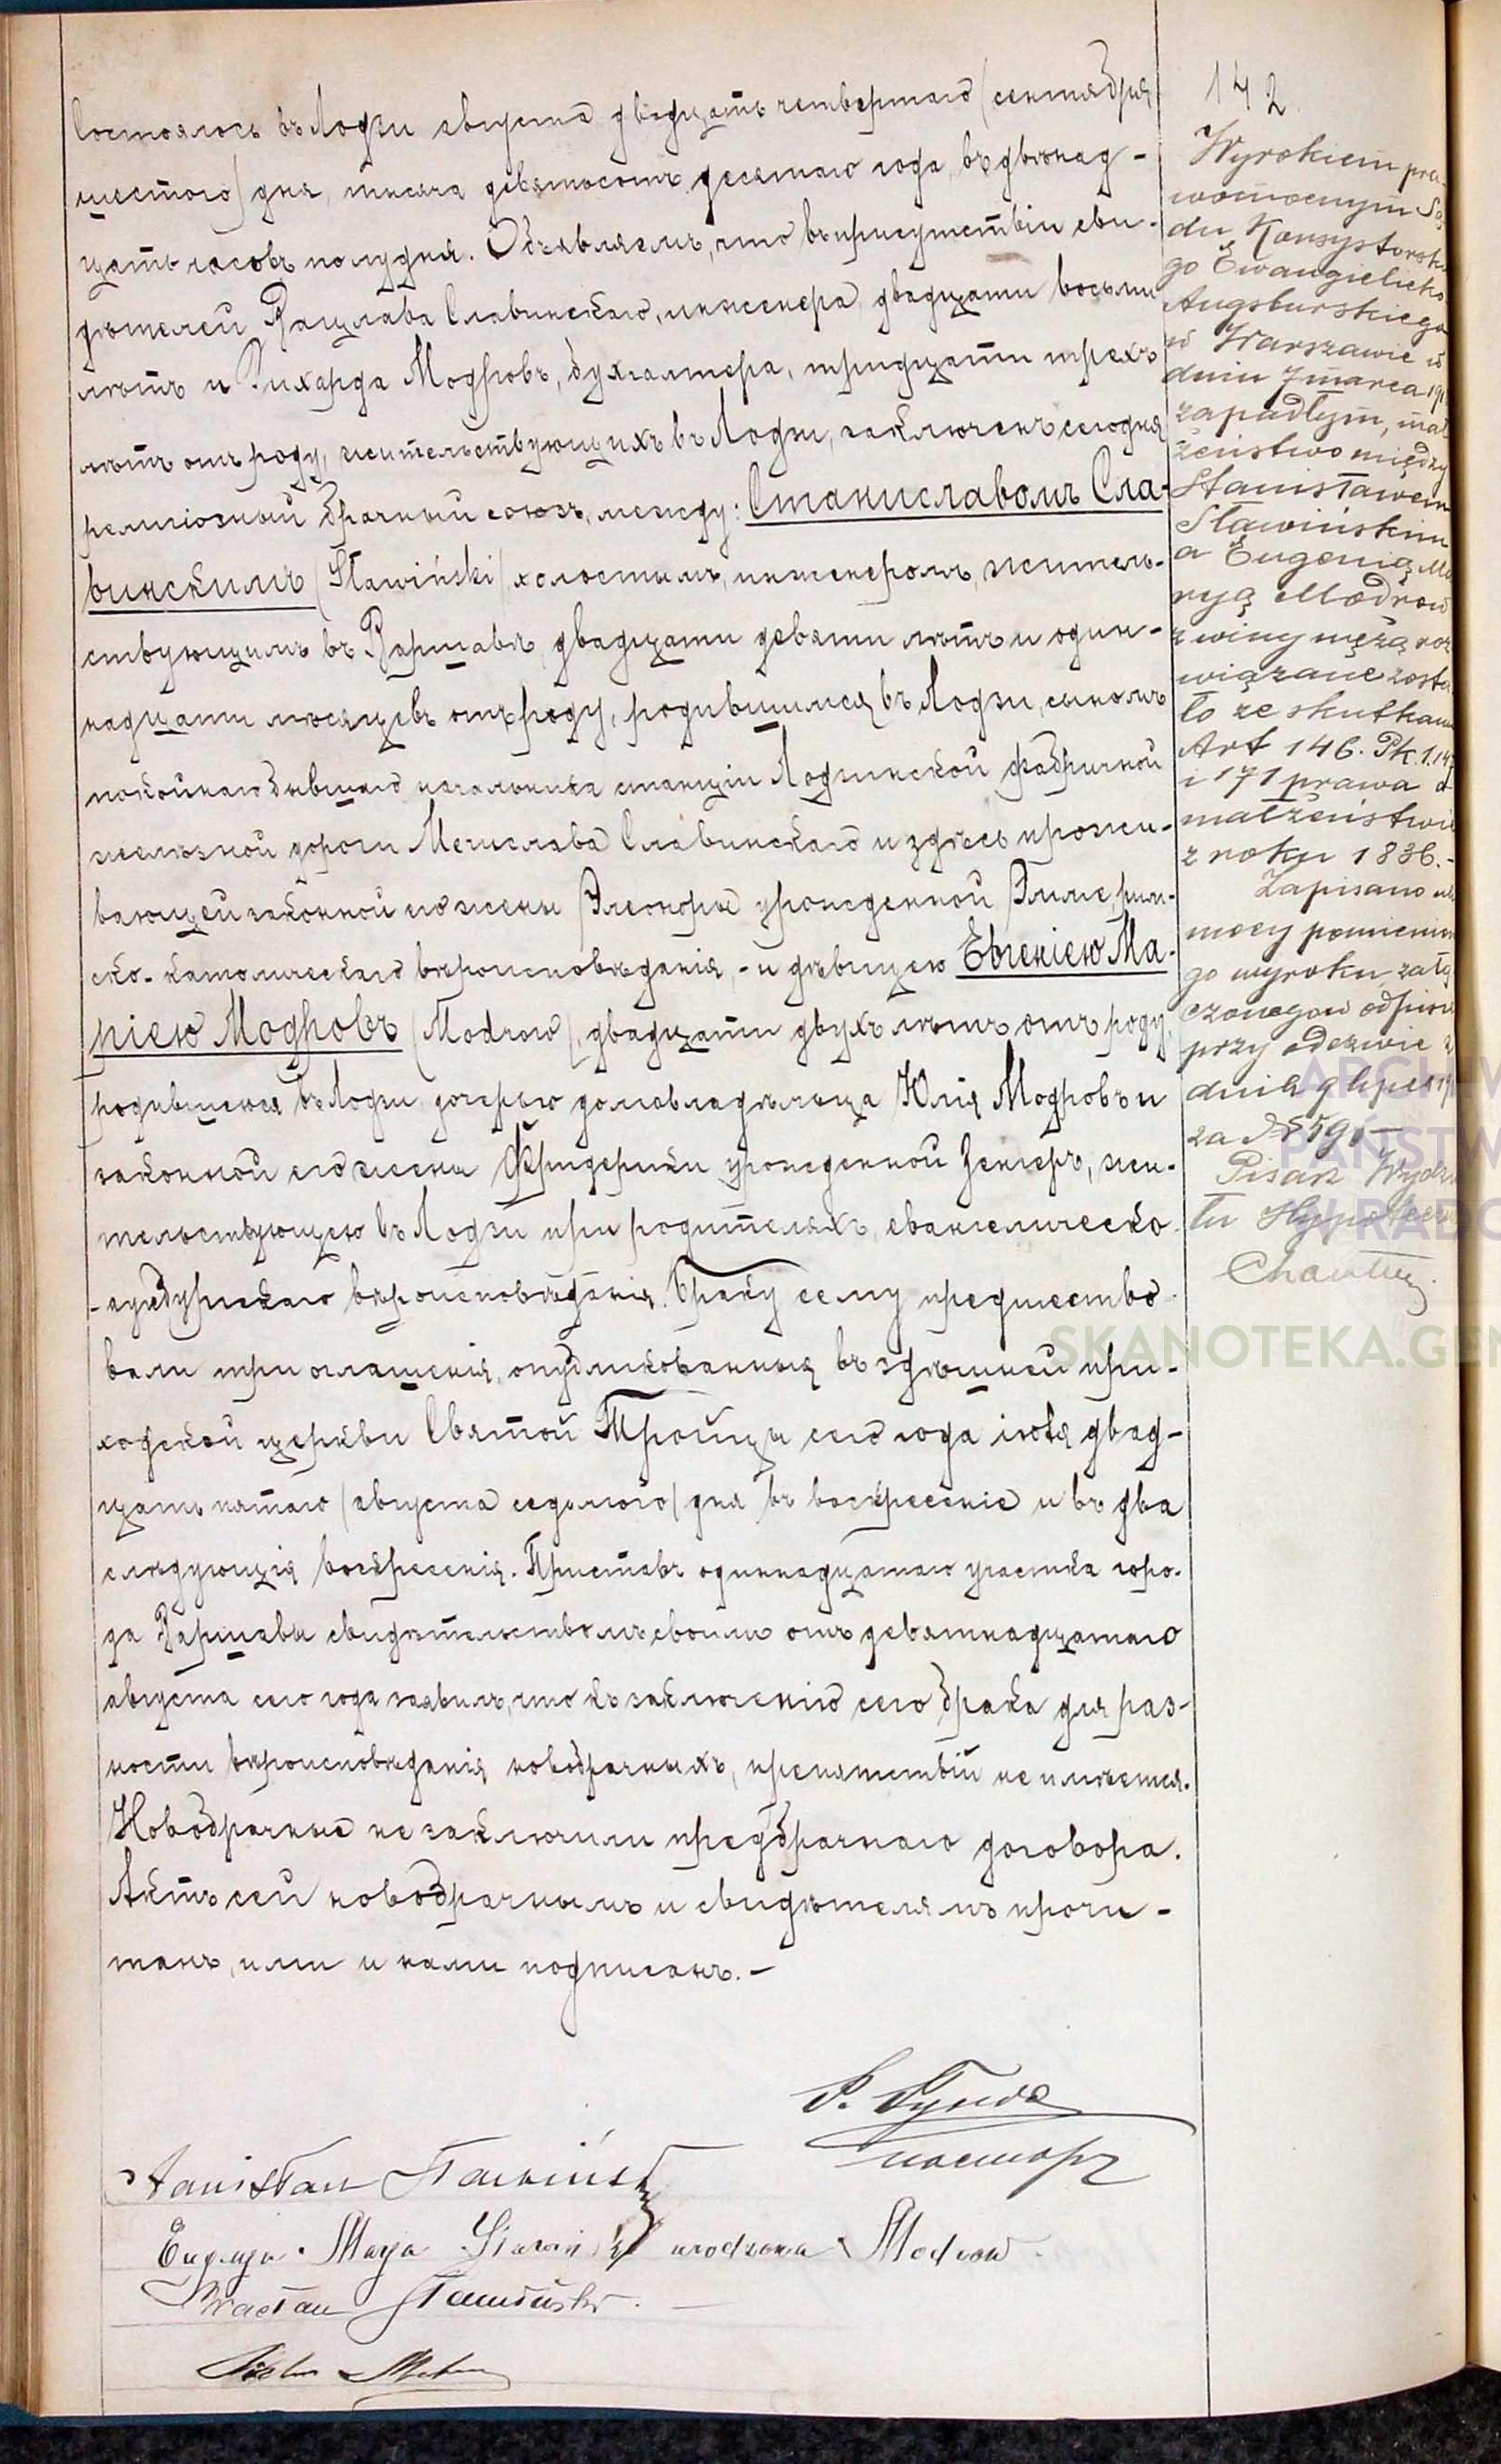 Состоялось въ Лодзи августа двадцать четвертаго (сентября
шестого) дня, тысяча девятьсотъ десятаго года, въ двѣнад-
цать часовъ полудня. Объявляемъ, что въ присутствіи сви-
дѣтелей Вацлава Славинскаго, инженера, двадцати восьми
лѣтъ и Рихарда Модровъ, бухгалтера, тридцати трехъ
лѣтъ отъ роду, жительствующихъ въ Лодзи, заключенъ сегодня
религіозный брачный союзъ, между: Станиславомъ Сла-
винскимъ (Sławiński) холостымъ, инженеромъ, житель-
ствующимъ въ Варшавѣ, двадцати девяти лѣтъ и один-
надцати мѣсяцевъ отъ роду, родившимся въ Лодзи, сыномъ
покойнаго бывшаго начальника станціи Лодзинской фабричной
желѣзной дороги Мечислава Славинскаго и здѣсь прожи-
вающей законной его жены Элеоноры урожденной, рим-
ско-католическаго вѣроисповѣданія, - и дѣвицею Евгеніею Ма-
ріею Модровъ (Modrow), двадцати двухъ лѣтъ отъ роду,
родившеюся въ Лодзи, дочерью домовладѣльца Юлія Модровъ и
законной его жены Фридерики урожденной Зенгеръ, жи-
тельствующею въ Лодзи при родителяхъ, евангелическо-
-аугсбургскаго вѣроисповѣданія. Браку сему предшество-
вали три оглашенія, опубликованныя въ здѣшней при-
ходской церкви Святой Троицы сего года іюля двад-
цать пятаго (августа седьмого) дня въ воскресеніе и въ два
слѣдующія воскресенія. Приставъ одиннадцатаго участка горо-
да Варшавы свидѣтельствомъ своимъ отъ девятнадцатаго
августа сего года заявилъ, что къ заключенію сего брака для раз-
ности вѣроисповѣданія новобрачныхъ, препятствій не имѣется.
Новобрачные не заключили предбрачнаго договора.
Актъ сей новобрачнымъ и свидѣтелямъ прочи-
танъ, ими и нами подписанъ. -
Р. Гундлах
пасторъ
Stanisław Sławiński
Eugenja Marja Sławińska urodzona Modrow.
Wacław Sławiński.
142.
Wyrokiem pra-
womocnym Są
du Konsystorsk
go Ewangielicko
Augsburskiego
w Warszawie w
dniu 7 marca 19
zapadłym, mał
żeństwo między
Stanisławem
Sławińskim
a Eugenią Ma
ryą Modrow
z winy męża roz
wiązane zosta
ło ze skutkami
Art 146. Pk. 1. 14
i 171 prawa o
małżeństwie
z roku 1836. -
Zapisano na
mocy pomienion
go wyroku, załą
czonego w odpisie
przy odezwie z
dnia 9 lipca 19
za № 590 -
Pisarz Wydzia
łu Hypoteczn
ARCHIW
PAŃSTW
W RADO
SKANOTEKA.GEN